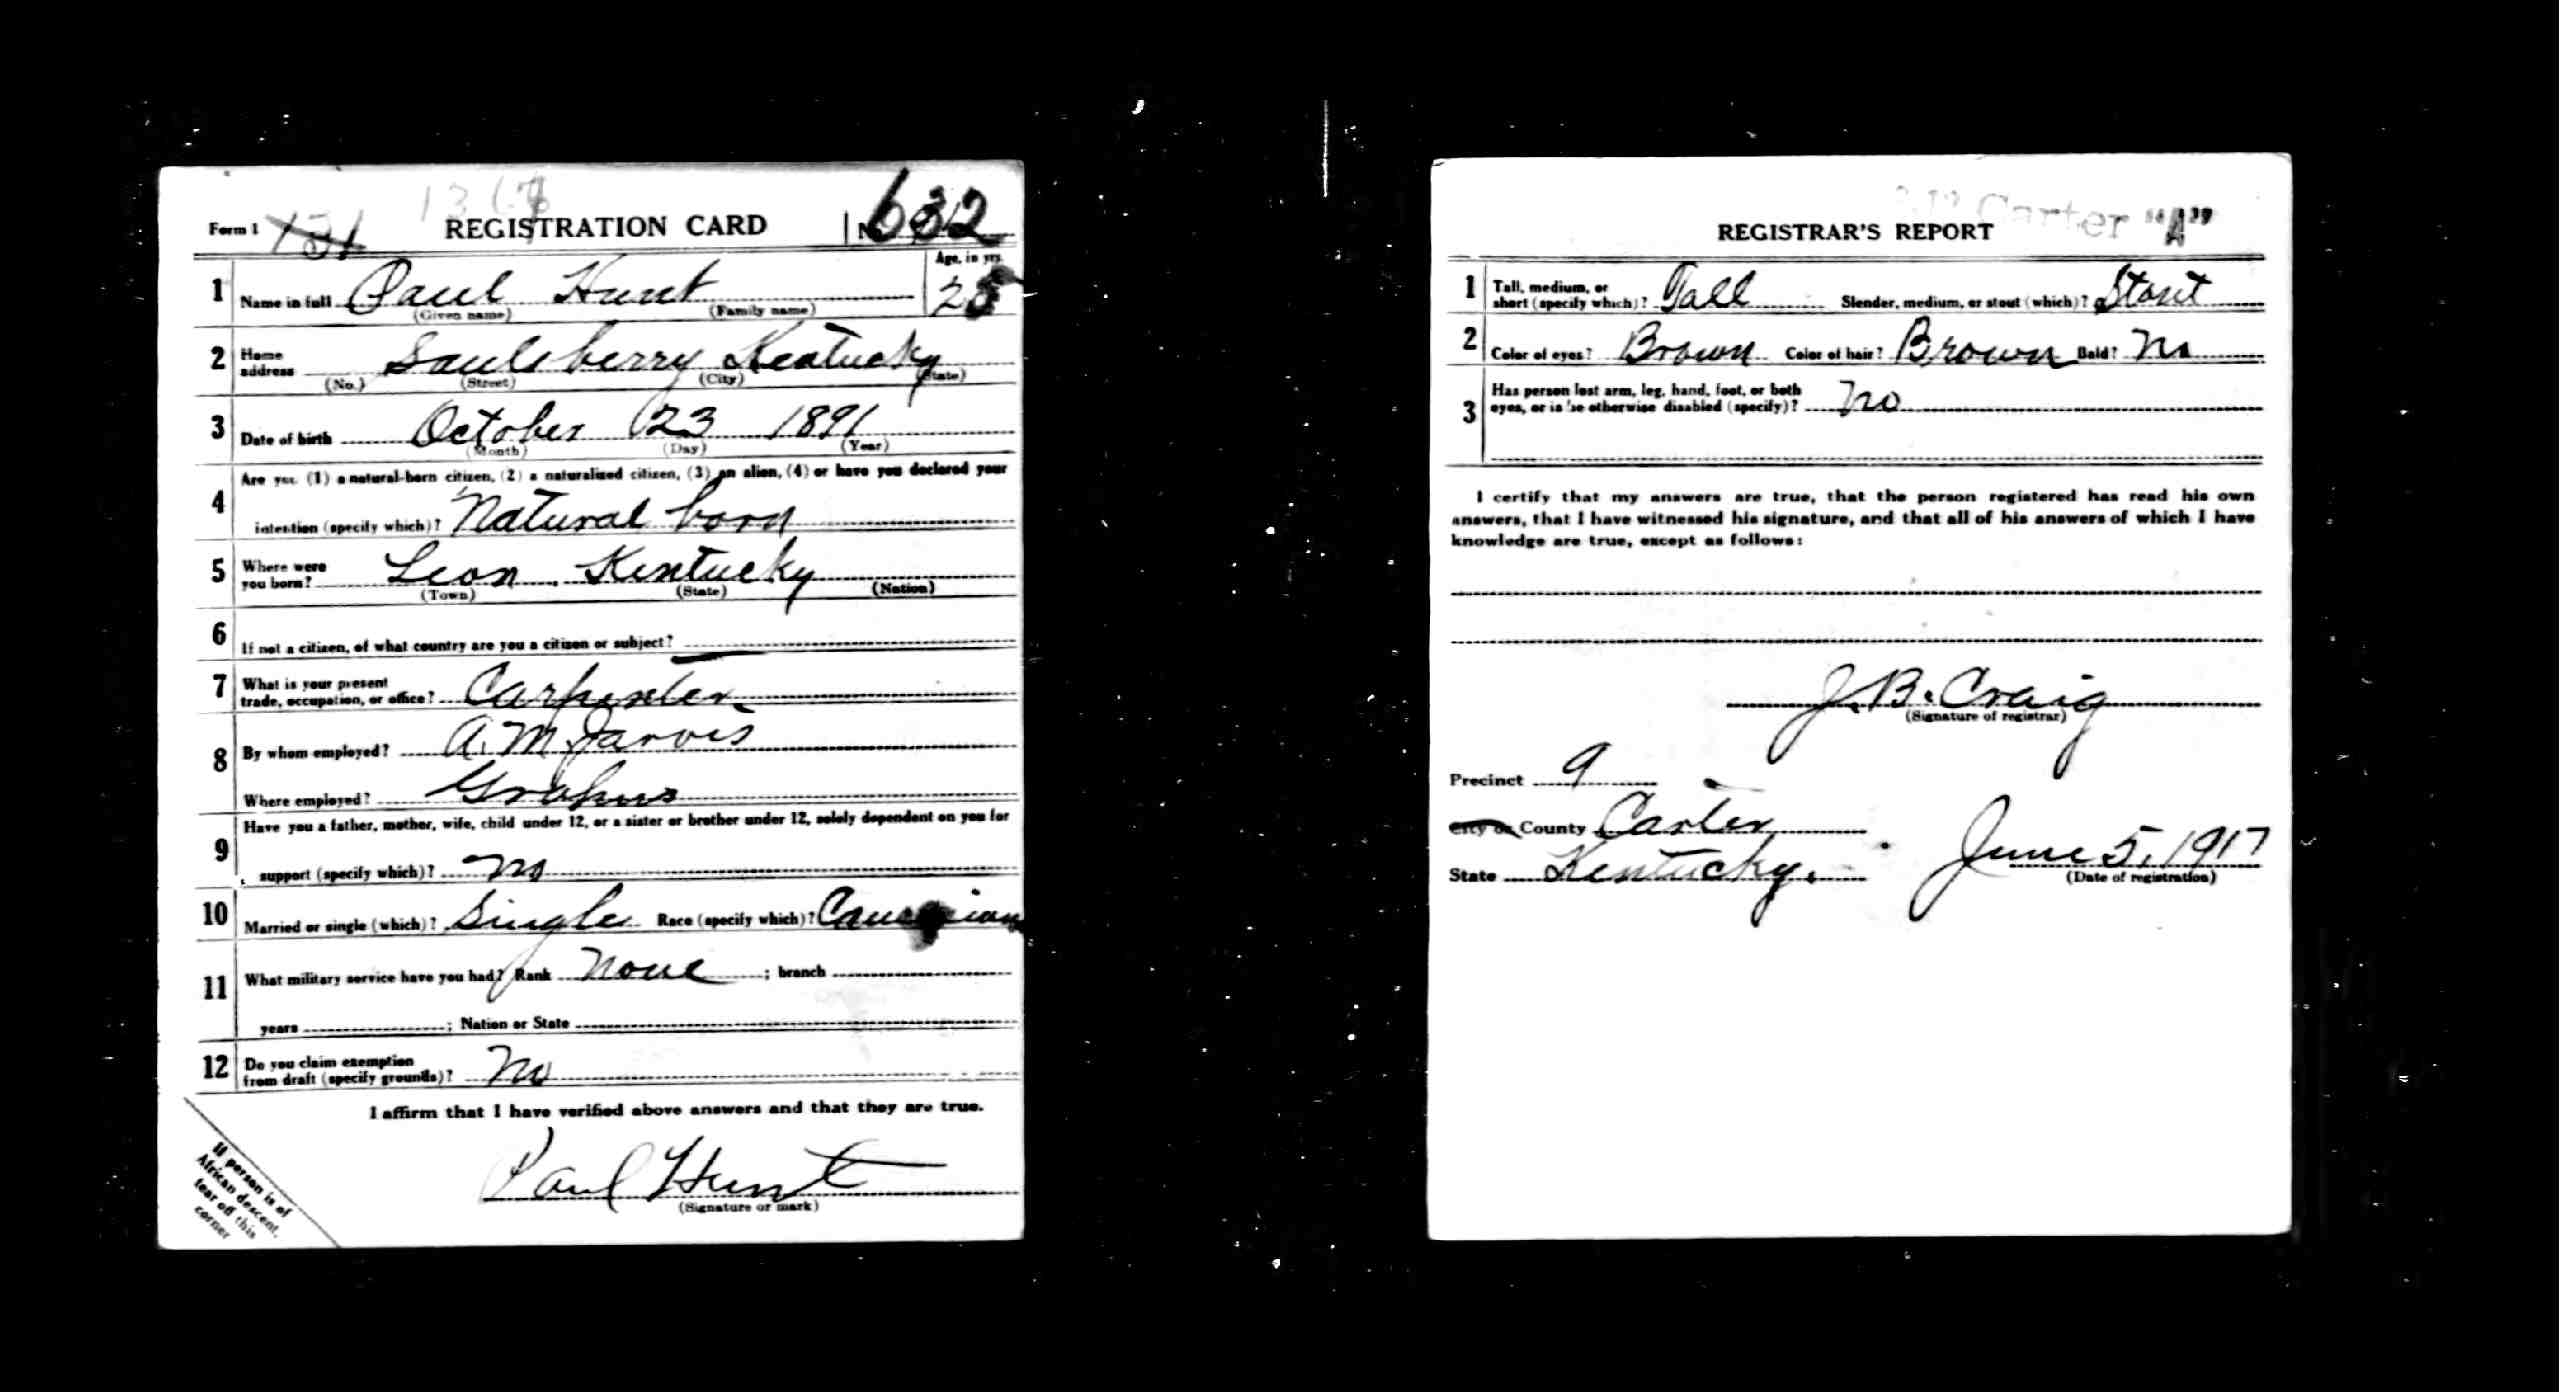 Form 1 REGISTRATION CARD No. 632
1 Name in full Paul Hunt Age, in yrs. 25
(Given name) (Family name)
2 Home address Saulsberry Kentucky
(No.) (Street) (City) (State)
3 Date of birth October 23 1891
(Month) (Day) (Year)
4 Are you (1) a natural-born citizen, (2) a naturalized citizen, (3) an alien, (4) or have you declared your
intention (specify which)? Natural born
5 Where were you born? Leon, Kentucky
(Town) (State) (Nation)
6 If not a citizen, of what country are you a citizen or subject?
7 What is your present
trade, occupation, or office? Carpenter
8 By whom employed? A. M. Jarvis
Where employed? Grahns
9 Have you a father, mother, wife, child under 12, or a sister or brother under 12, solely dependent on you for
support (specify which)? No
10 Married or single (which)? Single Race (specify which)? Caucasian
11 What military service have you had? Rank None ; branch
years ; Nation or State
12 Do you claim exemption
from draft (specify grounds)? No
I affirm that I have verified above answers and that they are true.
Paul Hunt
(Signature or mark)
If person is of
African descent,
tear off this
corner
Carter "A"
REGISTRAR'S REPORT
1 Tall, medium, or
short (specify which)? Tall Slender, medium, or stout (which)? Stout
2 Color of eyes? Brown Color of hair? Brown Bald? No
3 Has person lost arm, leg, hand, foot, or both
eyes, or is he otherwise disabled (specify)? No
I certify that my answers are true, that the person registered has read his own
answers, that I have witnessed his signature, and that all of his answers of which I have
knowledge are true, except as follows:
J. B. Craig
(Signature of registrar)
Precinct 9
City or County Carter
State Kentucky. June 5, 1917
(Date of registration)